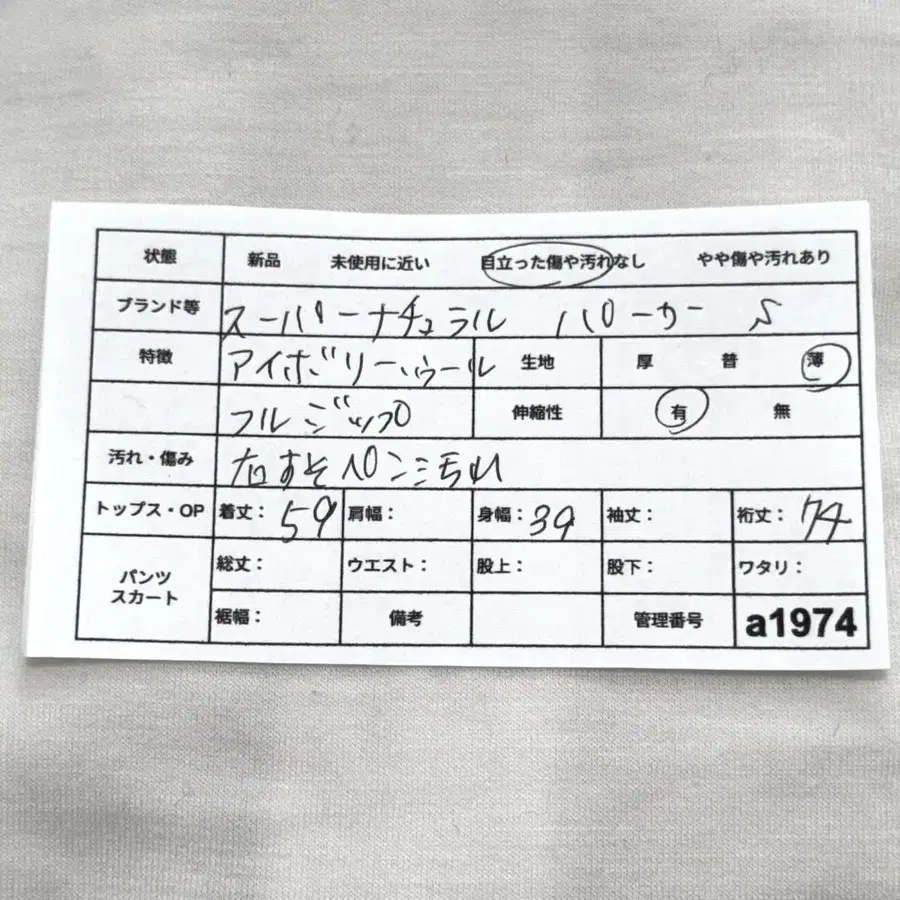 状態 新品 未使用に近い 目立った傷や汚れなし やや傷や汚れあり
ブランド等 スーパーナチュラル パーカー S
特徴 アイボリー ウール 生地 厚 普 薄
フルジップ 伸縮性 有 無
汚れ・傷み 右すそ 汚れ
トップス・OP 着丈: 59 肩幅: 身幅: 39 袖丈: 裄丈: 74
パンツ スカート 総丈: ウエスト: 股上: 股下: ワタリ:
裾幅: 備考 管理番号 a1974